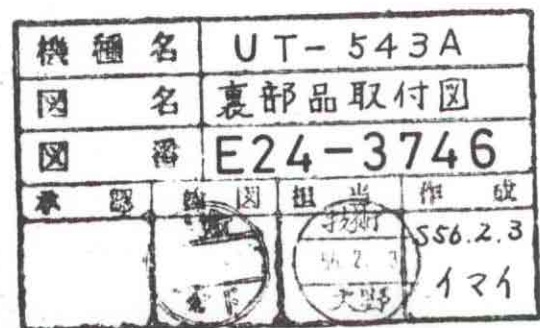 機種名 UT-543A
図名 裏部品取付図
図番 E24-3746
承認 検図 担当 作成
技術
56.2.3
大野
S56.2.3
イマイ